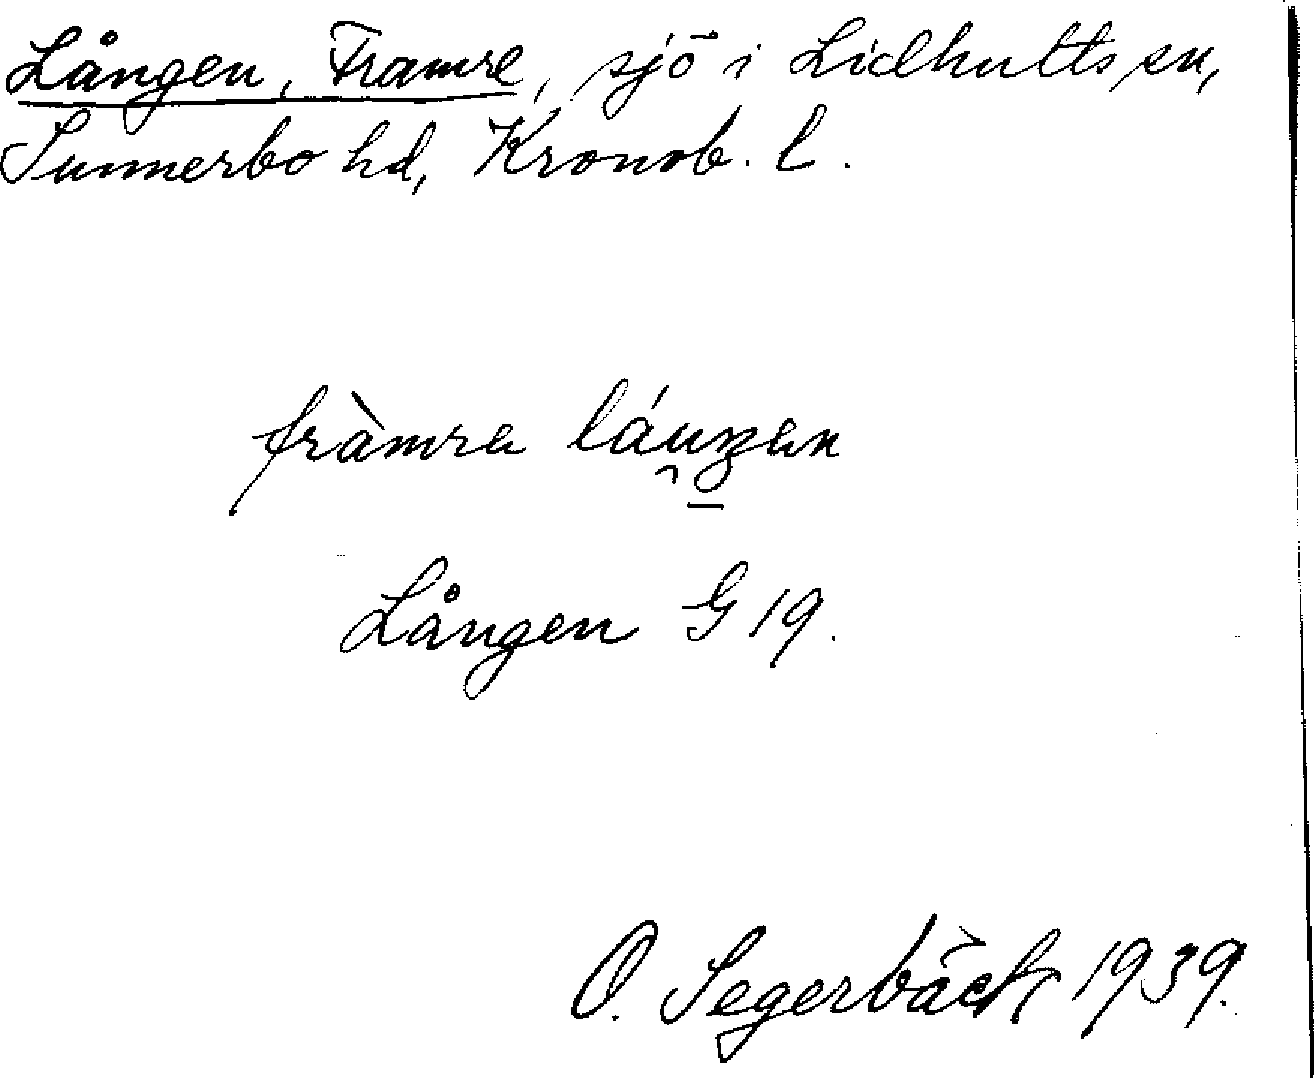 Lången, Framre, sjö i Lidhults sn,
Sunnerbo hd, Kronob. l.
fràmra láu̯ŋan
Lången G 19.
O. Segerbäck 1939.